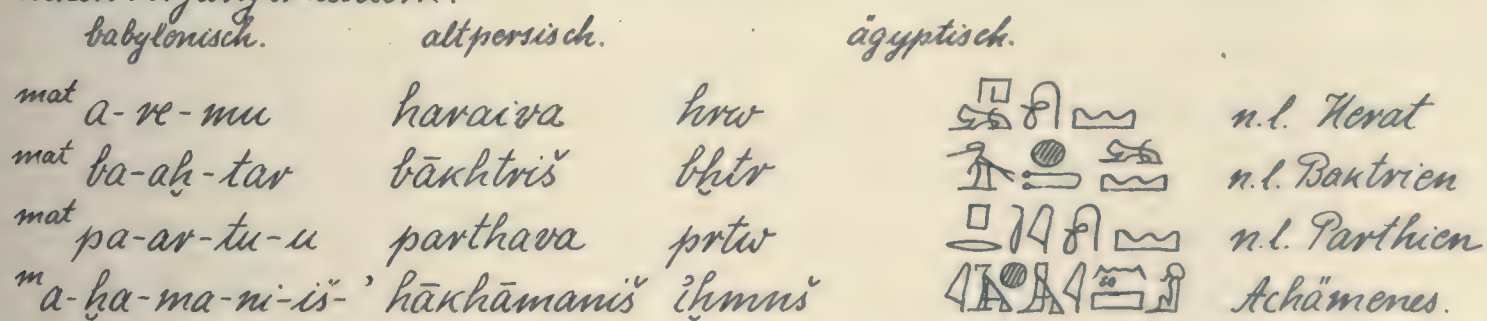 babylonisch. altpersisch. ägyptisch.
mat a-re-mu haraiva hrw n.l. Herat
mat ba-aḫ-tar bākhtriš bḫtr n.l. Baktrien
mat pa-ar-tu-u parthava prtw n.l. Parthien
m a-ḫa-ma-ni-iš-' hākhāmaniš ỉḫmnš Achämenes.